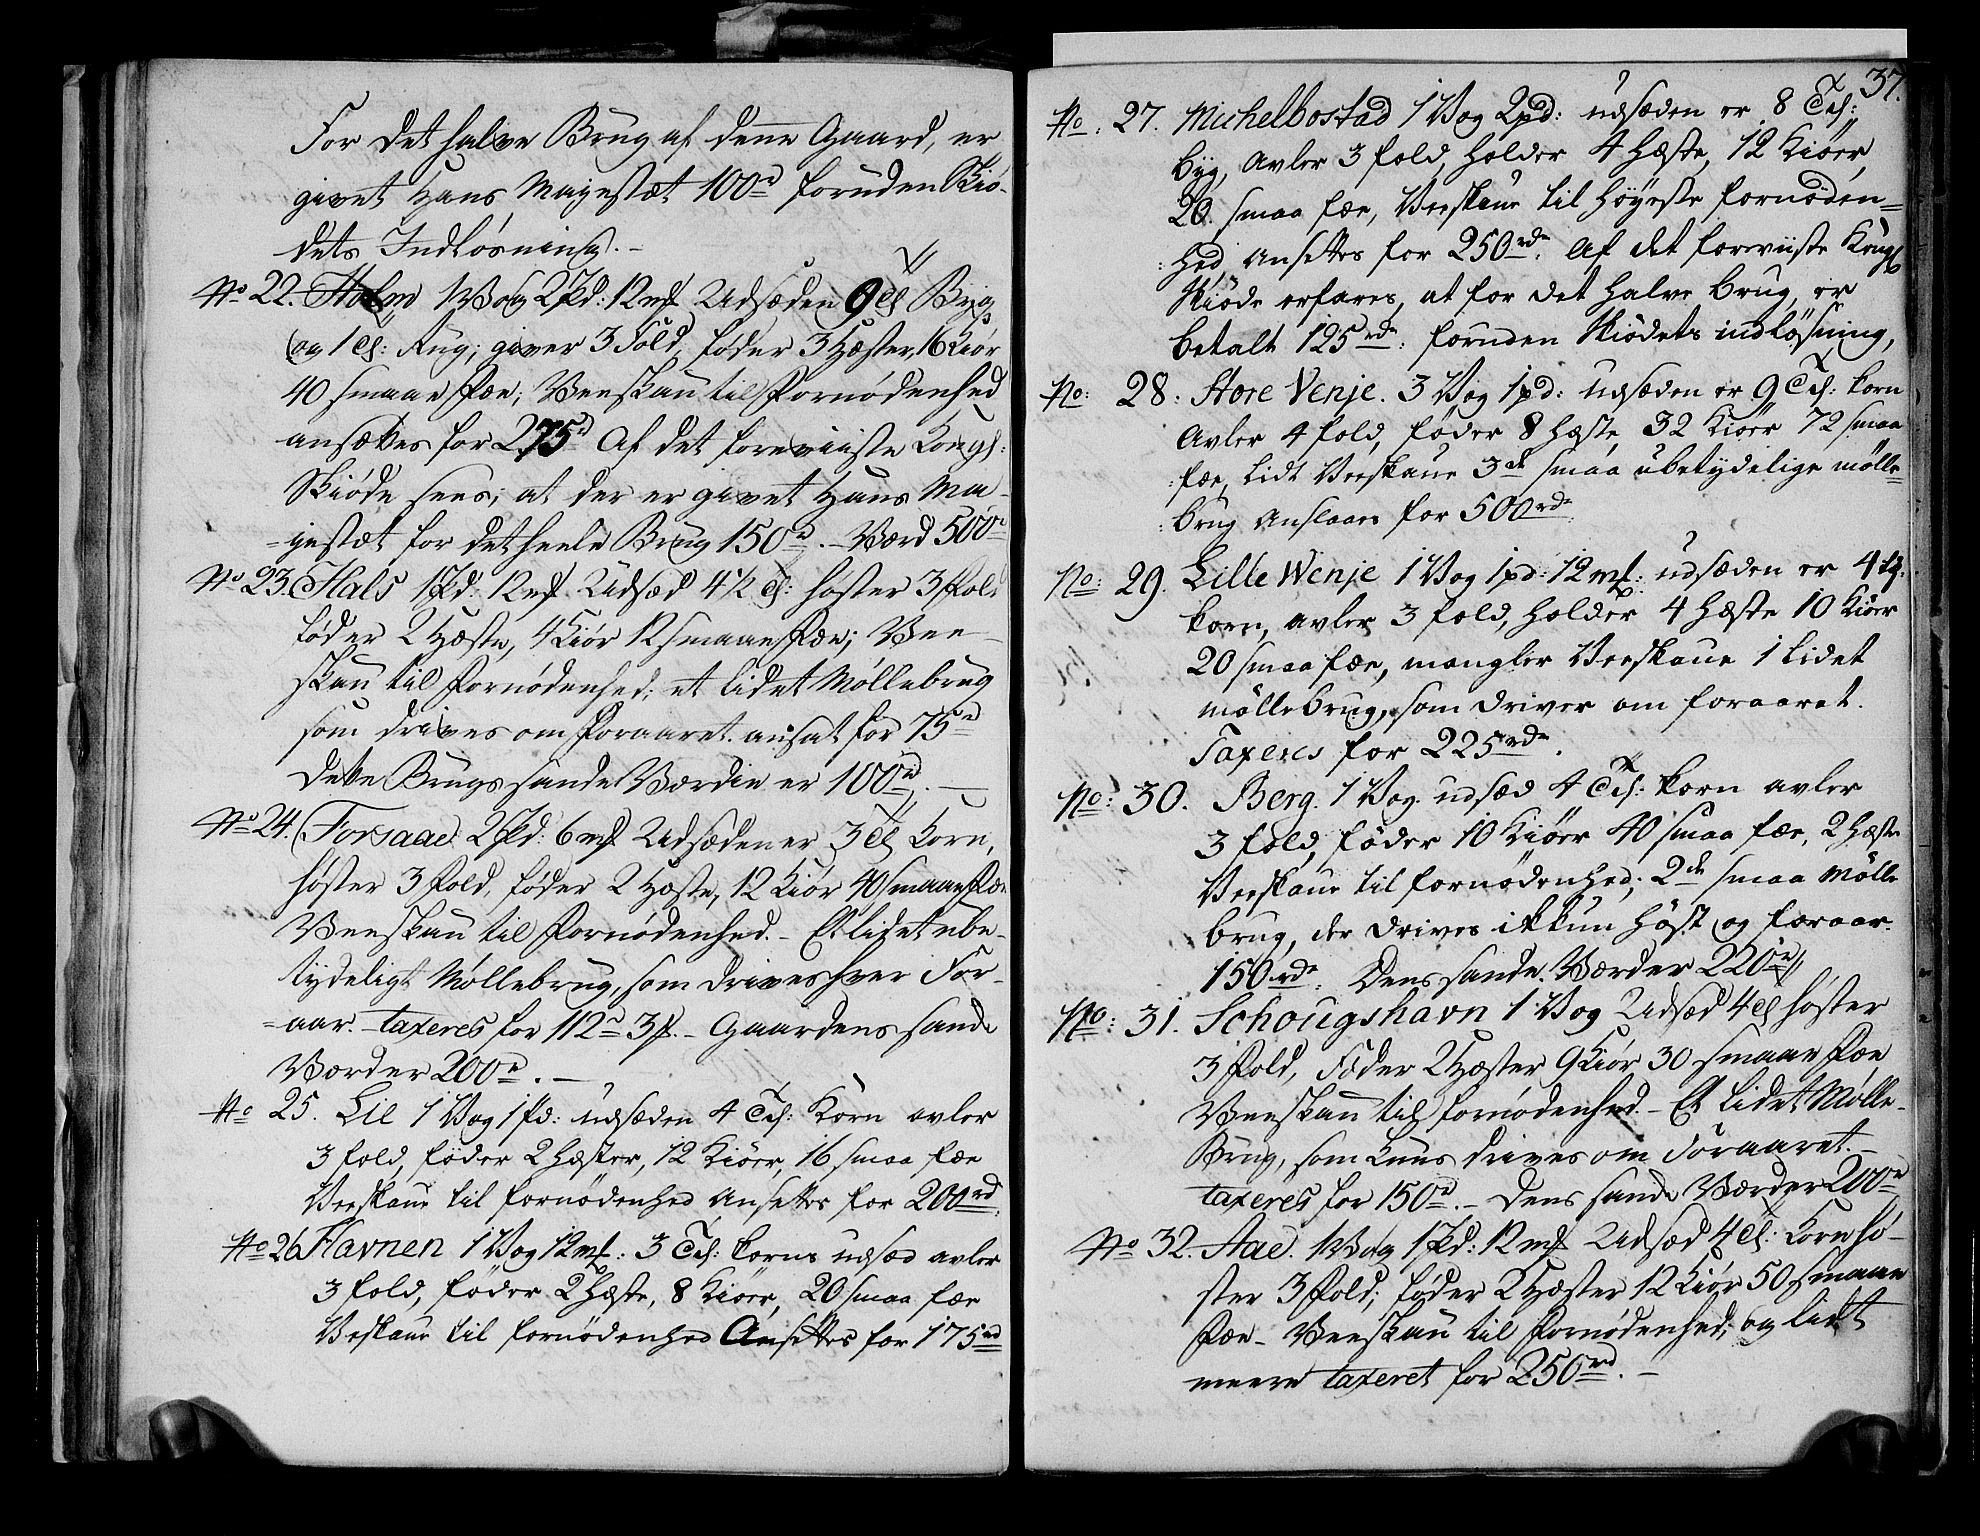 For det halve Brug af denne Gaard, er
givet Hans Majestæt 100rd foruden Skiø-
dets Indløsning. -
No 22. Holm 1 Vog 2 Pd: 12 mk Udsæden 9 Td Byg
og 1 Td: Rug; giver 3 Fold, føder 3 Hæster, 16 Kiør
40 smaae Fæe; Veeskau til Fornødenhed
ansættes for 275rd Af det foreviiste Kongl:
Skiøde sees; at der er givet Hans Ma-
-gestæt for det heele Brug 150rd. - Værd 500rd
No 23. Hals 1 Pd: 12 mk Udsæd 4 1/2 Td: høster 3 Fold
føder 2 Hæste, 4 Kiør 12 smaae Fæe; Vee-
skau til Fornødenhed; et lidet Møllebrug
som drives om Foraaret. ansat for 75rd
Dette Brugs sande Værdie er 100rd. -
No 24. Forsaae 2 Pd: 6 mk Udsæden er 3 Td Korn,
høster 3 Fold, føder 2 Hæste, 12 Kiør 40 smaae Fæe
Veeskau til Fornødenhed. - Et lidet ube-
tydeligt Møllebrug, som drives hver For-
-aar. - taxeres for 112rd 3 f. - Gaardens sande
Værder 200rd. -
No 25. Lie 1 Vog 1 Pd: udsæden 4 Td: Korn avler
3 fold, föder 2 Hæster, 12 Kiöer, 16 smaa fæe
Veeskaue til fornödenhed Ansettes for 200rd.
No 26 Havnen 1 Vog 12 mk: 3 Td: korns udsæd avler
3 fold, föder 2 Hæste, 8 Kiöer, 20 smaa fæe
Veskaue til fornödenhed Ansettes for 175rd
37.
No: 27. Michelbostad 1 Vog 2 pd: udsæden er 8 Td:
byg, Avler 3 fold, Holder 4 Hæste, 12 Kiöer,
20 smaa fæe, Veeskaue til höyeste fornöden=
:hed Ansettes for 250rdr. Af det forviiste Kongl
Skiöde erfares, at for det halve brug, er
betalt 125rdr: foruden Skiödets indlösning,
No: 28. Store Venje. 3 Vog 1 pd: udsæden er 9 Td: korn
Avler 4 fold, föder 8 Hæste 32 Kiöer 72 smaa
:fæe, Lidt Veeskaue 3de smaa ubetydelige mölle
:brug Anslaaes for 500rdr
No: 29. Lille Wenje 1 Vog 1 pd: 12 mk: udsæden er 4 td:
korn, avler 3 fold, holder 4 Hæste 10 Kiöer
20 smaa fæe, mangler Veeskaue 1 Lidet
möllebrug, som driver om foraaret.
Taxeres for 225rdr.
No: 30. Berg. 1 Vog. udsæd 4 Td: korn avler
3 fold, föder 10 Kiöer 40 smaa fæe, 2 Hæste
Veeskaue til fornödenhed; 2de smaa Mölle
brug, der drives ikkun Höst og foraar.
150rdr. Dens sande Værder 220rd
No: 31. Schougshavn 1 Vog Udsæd 4 Td høster
3 Fold, Føder 2 Hæster 9 Kiør 30 smaae Fæe
Veeskau til fornødenhed. - Et lidet Mølle-
Brug, som kuns drives om Foraaret. -
taxeres for 150rd. - Dens sande Værder 200rd
No 32. Aae. 1 Vog 1 Pd: 12 mk Udsæd 4 Td: Korn hø-
ster 3 Fold; føder 2 Hæster 12 Kiør 50 smaae
Fæe - Veeskau til Fornødenhed, og lidt
meere taxeret for 250rd. -